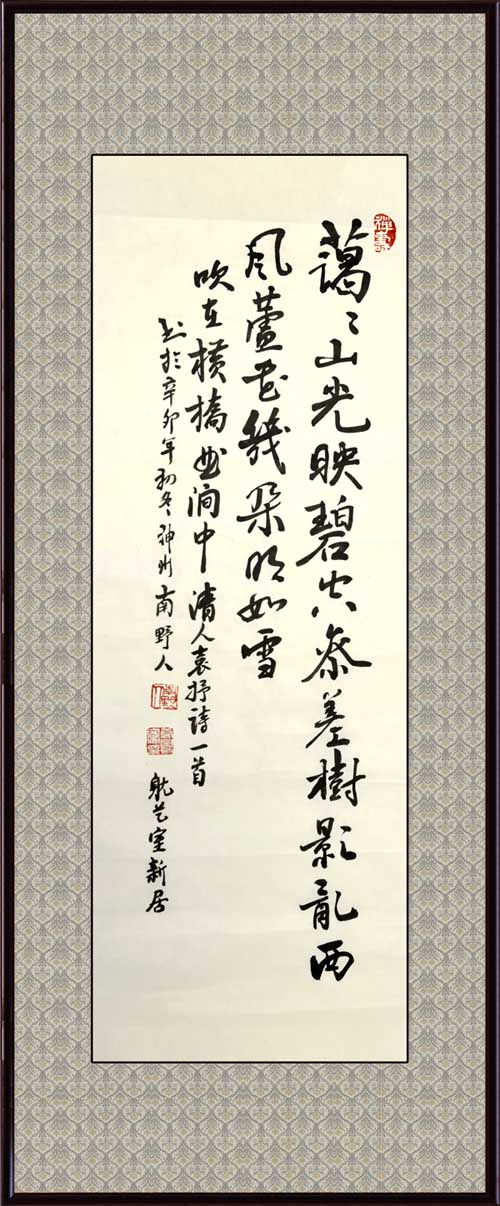 藹〻山光映碧空參差樹影亂西
風蘆花幾朵明如雪
吹在横橋曲澗中 清人袁抒詩一首
书於辛卯年初冬神州南野人
躭艺室新居